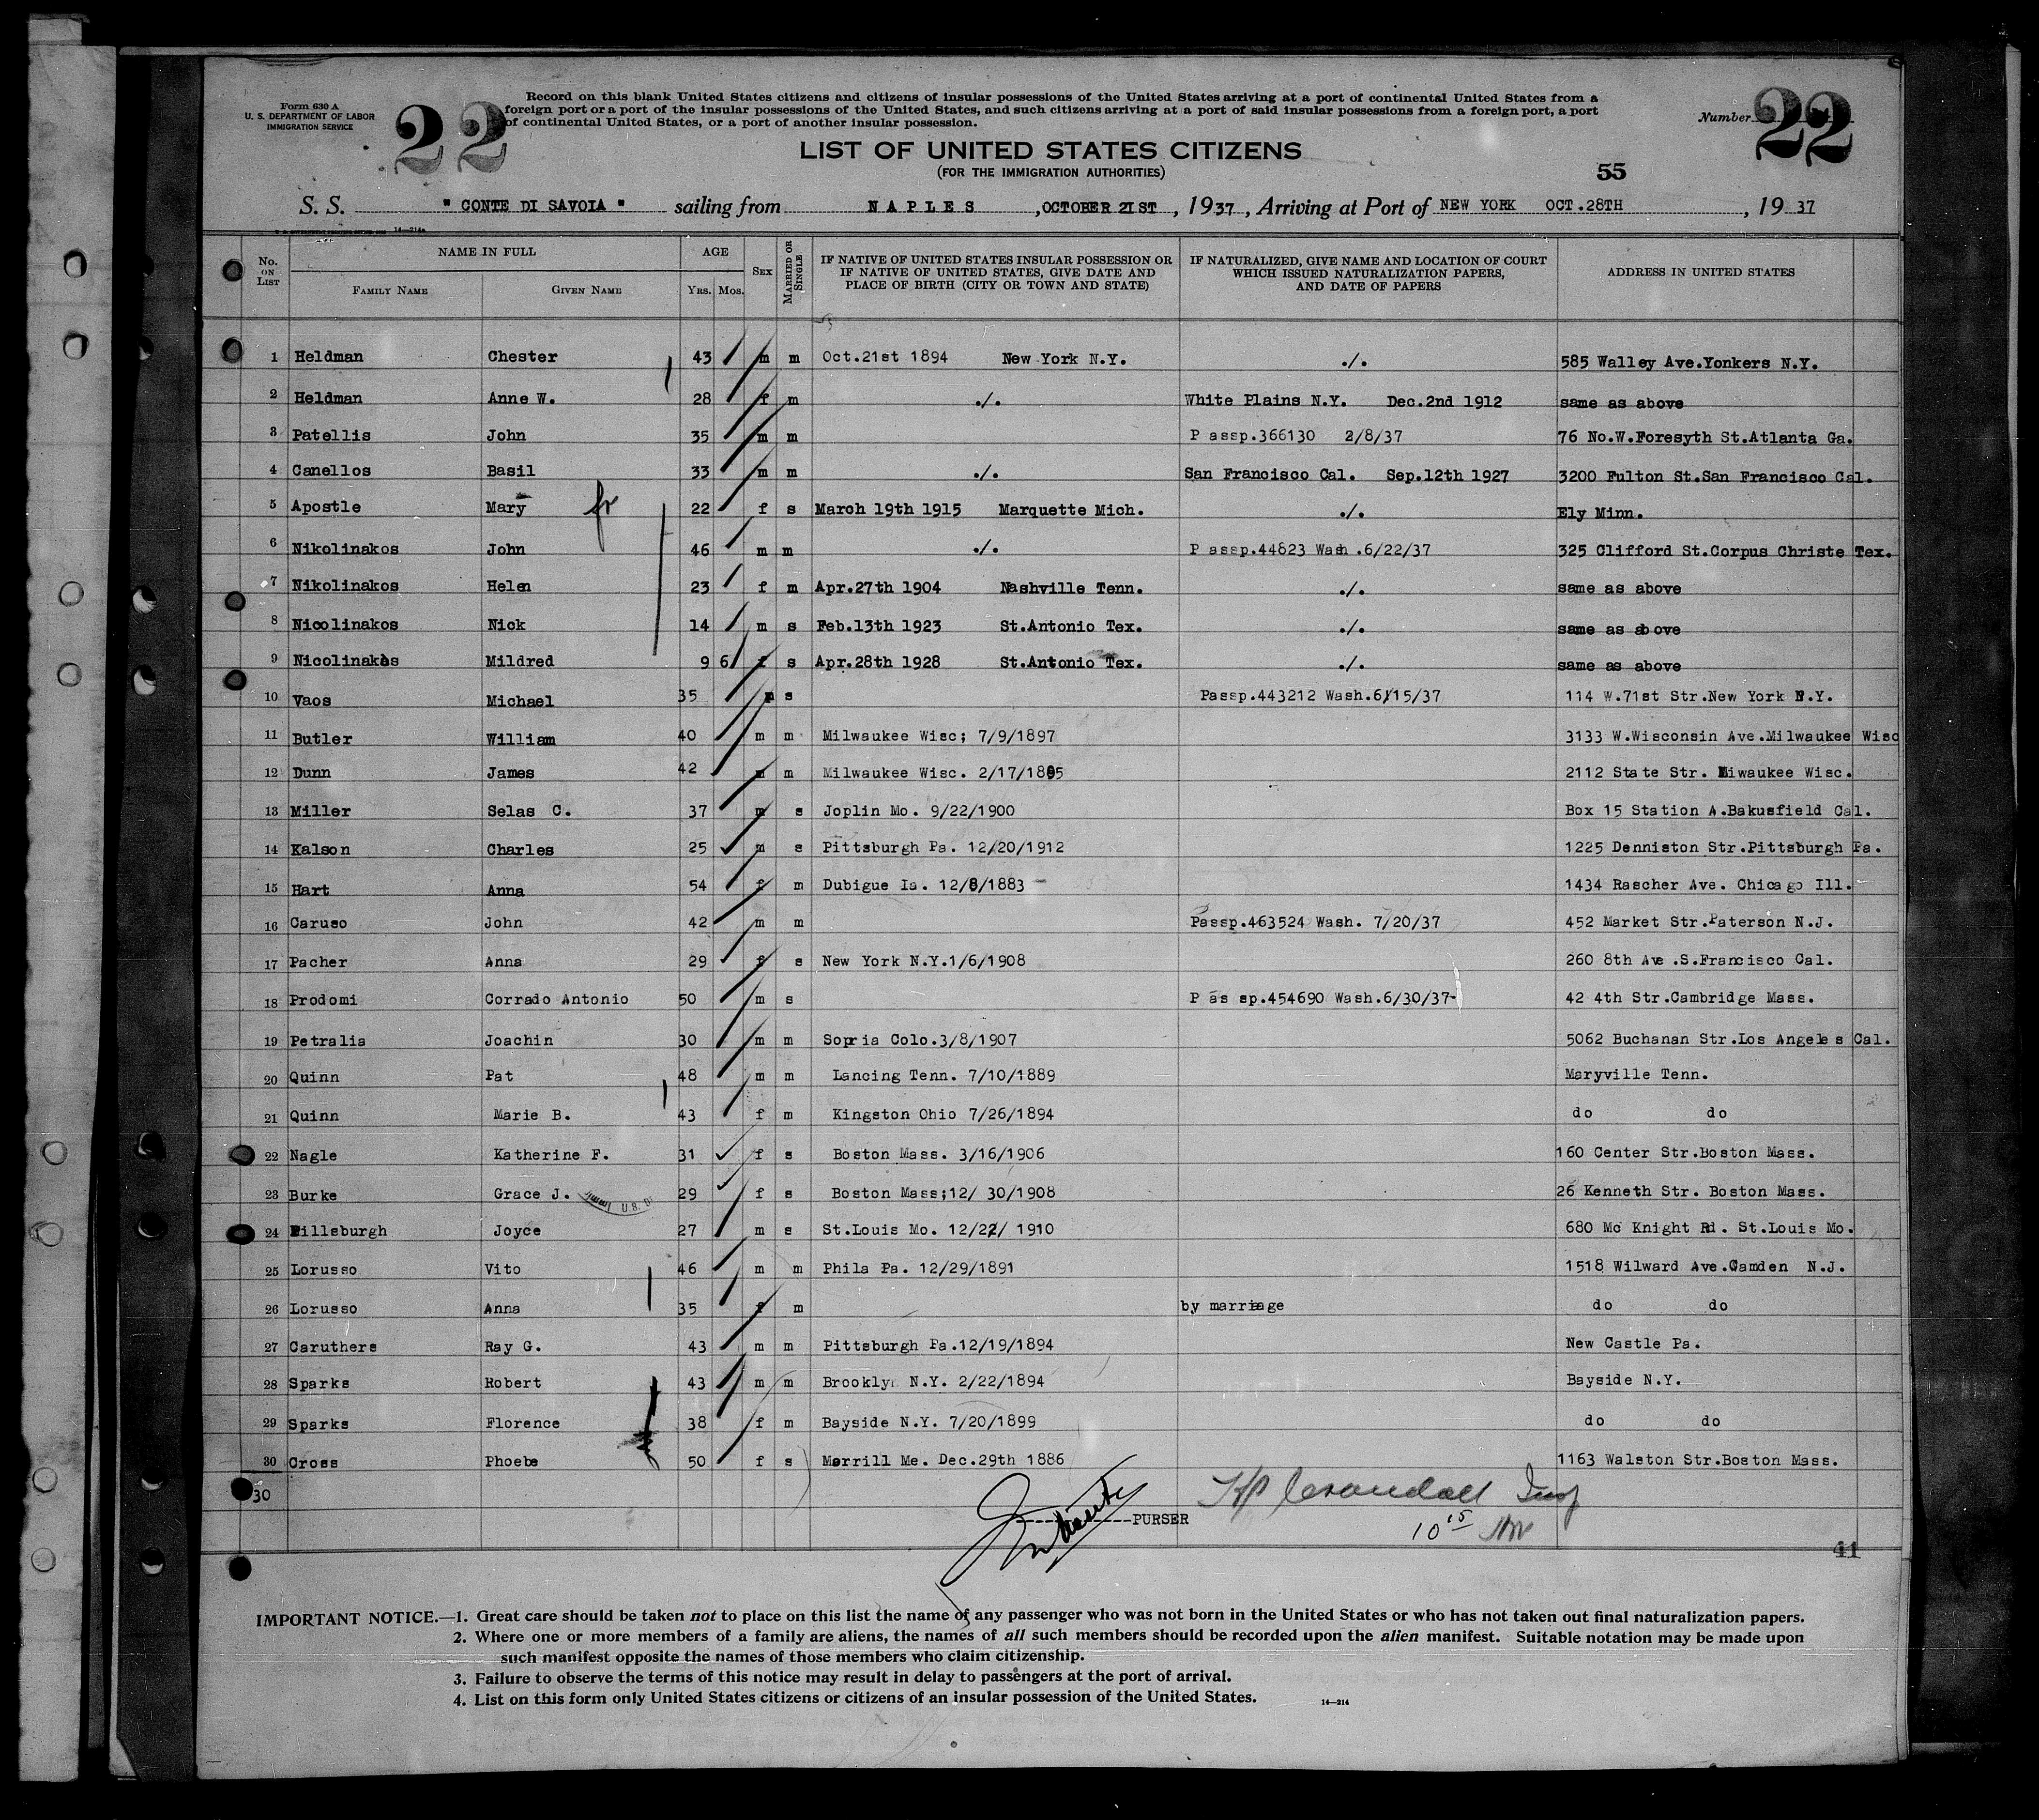 Form 630 A
U. S. DEPARTMENT OF LABOR
IMMIGRATION SERVICE
22
Record on this blank United States citizens and citizens of insular possessions of the United States arriving at a port of continental United States from a
foreign port or a port of the insular possessions of the United States, and such citizens arriving at a port of said insular possessions from a foreign port, a port
of continental United States, or a port of another insular possession.
Number 22
LIST OF UNITED STATES CITIZENS
(FOR THE IMMIGRATION AUTHORITIES)
55
S. S. " CONTE DI SAVOIA " sailing from NAPLES ,OCTOBER 21ST , 1937, Arriving at Port of NEW YORK OCT.28TH , 19 37
14—214a
No. ON LIST NAME IN FULL AGE SEX MARRIED OR SINGLE IF NATIVE OF UNITED STATES INSULAR POSSESSION OR IF NATIVE OF UNITED STATES, GIVE DATE AND PLACE OF BIRTH (CITY OR TOWN AND STATE) IF NATURALIZED, GIVE NAME AND LOCATION OF COURT WHICH ISSUED NATURALIZATION PAPERS, AND DATE OF PAPERS ADDRESS IN UNITED STATES
FAMILY NAME GIVEN NAME YRS. MOS.
1 Heldman Chester 43 m m Oct.21st 1894 New York N.Y. ./. 585 Walley Ave.Yonkers N.Y.
2 Heldman Anne W. 28 f m ./. White Plains N.Y. Dec.2nd 1912 same as above
3 Patellis John 35 m m P assp.366130 2/8/37 76 No.W.Foresyth St.Atlanta Ga.
4 Canellos Basil 33 m m ./. San Francisco Cal. Sep.12th 1927 3200 Fulton St.San Francisco Cal.
5 Apostle Mary 22 f s March 19th 1915 Marquette Mich. ./. Ely Minn.
6 Nikolinakos John 46 m m ./. P assp.44823 Wash .6/22/37 325 Clifford St.Corpus Christe Tex.
7 Nikolinakos Helen 23 f m Apr.27th 1904 Nashville Tenn. ./. same as above
8 Nicolinakos Nick 14 m s Feb.13th 1923 St.Antonio Tex. ./. same as above
9 Nicolinakos Mildred 9 6 f s Apr.28th 1928 St.Antonio Tex. ./. same as above
10 Vaos Michael 35 m s Passp.443212 Wash.6/15/37 114 W.71st Str.New York N.Y.
11 Butler William 40 m m Milwaukee Wisc; 7/9/1897 3133 W.Wisconsin Ave.Milwaukee Wisc
12 Dunn James 42 m m Milwaukee Wisc. 2/17/1895 2112 State Str. Miwaukee Wisc.
13 Miller Selas C. 37 m s Joplin Mo. 9/22/1900 Box 15 Station A.Bakusfield Cal.
14 Kalson Charles 25 m s Pittsburgh Pa. 12/20/1912 1225 Denniston Str.Pittsburgh Pa.
15 Hart Anna 54 f m Dubigue Ia. 12/8/1883 1434 Rascher Ave. Chicago Ill.
16 Caruso John 42 m m Passp.463524 Wash. 7/20/37 452 Market Str.Paterson N.J.
17 Pacher Anna 29 f s New York N.Y.1/6/1908 260 8th Ave .S.Francisco Cal.
18 Prodomi Corrado Antonio 50 m s P as sp.454690 Wash.6/30/37- 42 4th Str.Cambridge Mass.
19 Petralia Joachin 30 m m Sopria Colo.3/8/1907 5062 Buchanan Str.Los Angeles Cal.
20 Quinn Pat 48 m m Lancing Tenn. 7/10/1889 Maryville Tenn.
21 Quinn Marie B. 43 f m Kingston Ohio 7/26/1894 do do
22 Nagle Katherine F. 31 f s Boston Mass. 3/16/1906 160 Center Str.Boston Mass.
23 Burke Grace J. 29 f s Boston Mass;12/ 30/1908 26 Kenneth Str. Boston Mass.
24 Pillsburgh Joyce 27 m s St.Louis Mo. 12/22/ 1910 680 Mc Knight Rd. St.Louis Mo.
25 Lorusso Vito 46 m m Phila Pa. 12/29/1891 1518 Wilward Ave.Camden N.J.
26 Lorusso Anna 35 f m by marriage do do
27 Caruthers Ray G. 43 m m Pittsburgh Pa.12/19/1894 New Castle Pa.
28 Sparks Robert 43 m m Brooklyn N.Y. 2/22/1894 Bayside N.Y.
29 Sparks Florence 38 f m Bayside N.Y. 7/20/1899 do do
30 Cross Phoebe 50 f s Merrill Me. Dec.29th 1886 1163 Walston Str.Boston Mass.
30
PURSER
Crandall Insp
10 15 AM
41
IMPORTANT NOTICE.—1. Great care should be taken not to place on this list the name of any passenger who was not born in the United States or who has not taken out final naturalization papers.
2. Where one or more members of a family are aliens, the names of all such members should be recorded upon the alien manifest. Suitable notation may be made upon
such manifest opposite the names of those members who claim citizenship.
3. Failure to observe the terms of this notice may result in delay to passengers at the port of arrival.
4. List on this form only United States citizens or citizens of an insular possession of the United States.
14—214